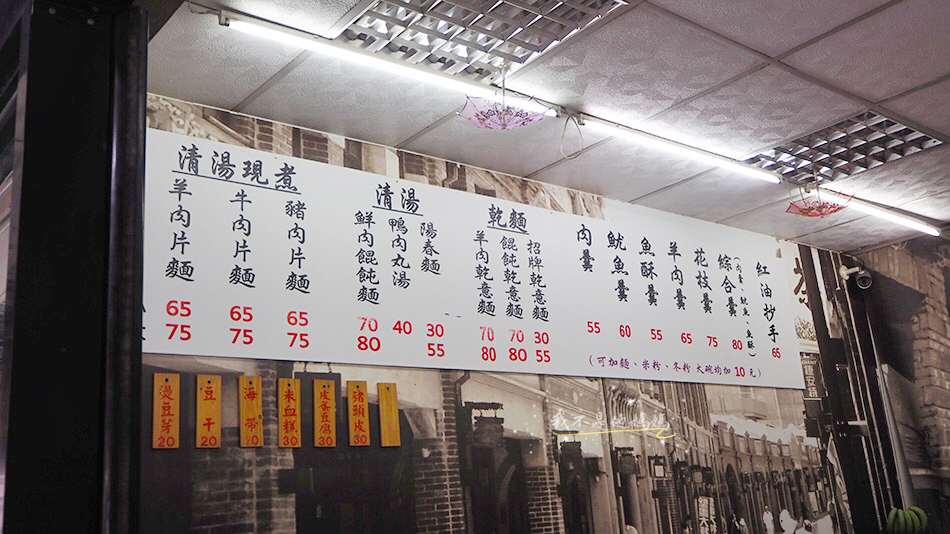 紅油抄手 65
綜合羹 (肉羹、魷魚、魚酥) 80
花枝羹 75
羊肉羹 65
魚酥羹 55
魷魚羹 60
肉羹 55
(可加麵、米粉、冬粉 大碗均加 10 元)
乾麵
招牌乾意麵 30 55
餛飩乾意麵 70 80
羊肉乾意麵 70 80
清湯
陽春麵 30 55
鴨肉丸湯 40
鮮肉餛飩麵 70 80
清湯現煮
豬肉片麵 65 75
牛肉片麵 65 75
羊肉片麵 65 75
豬頭皮 30
皮蛋豆腐 30
米血糕 30
海帶
豆干 20
燙豆芽 20